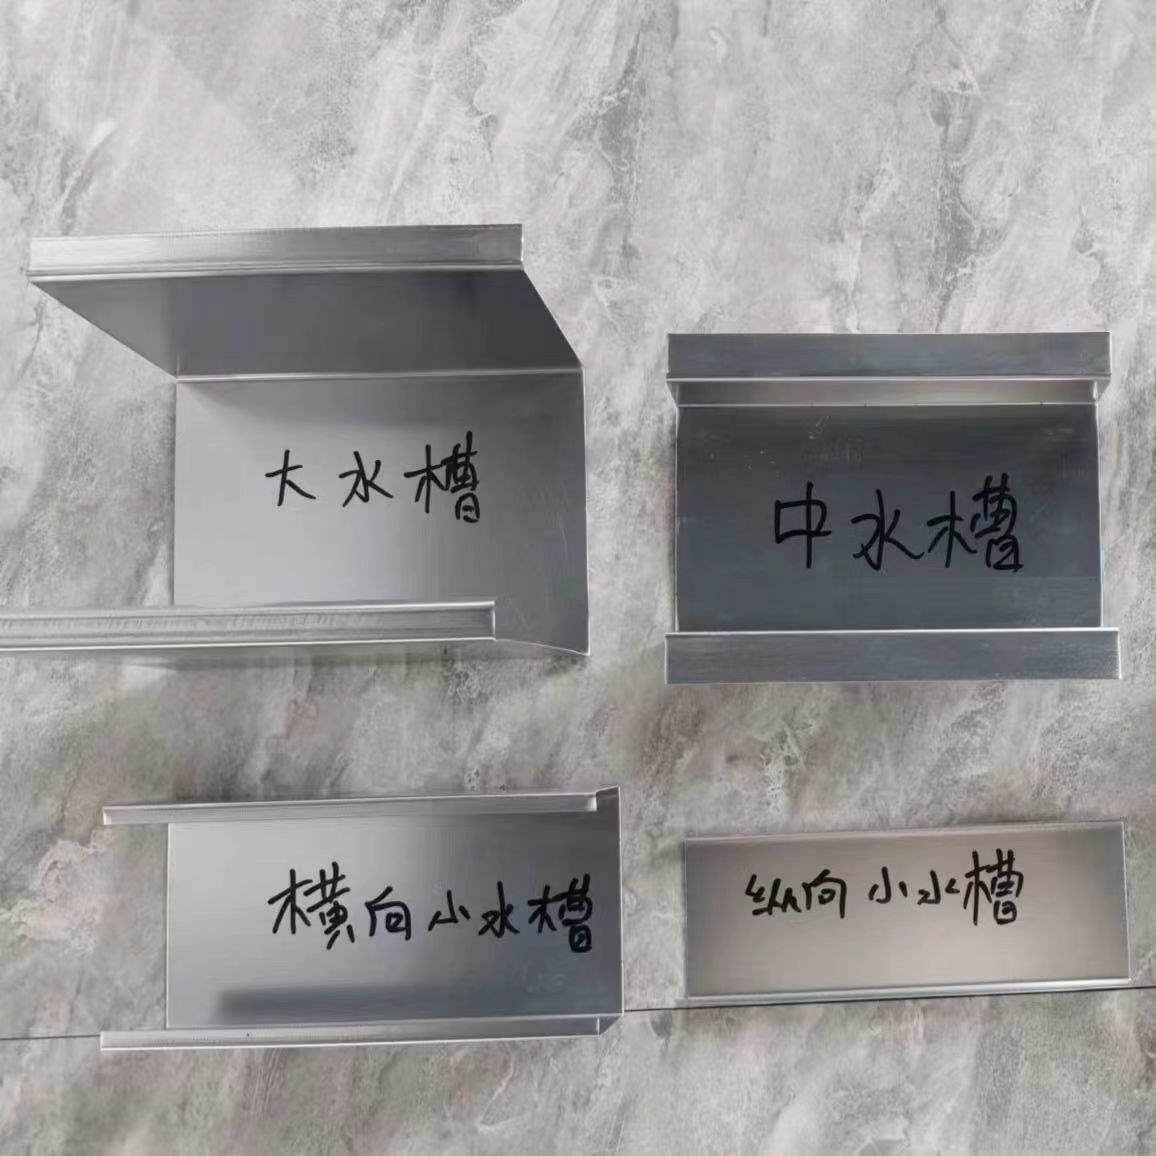 大水槽
中水槽
横向小水槽
纵向小水槽